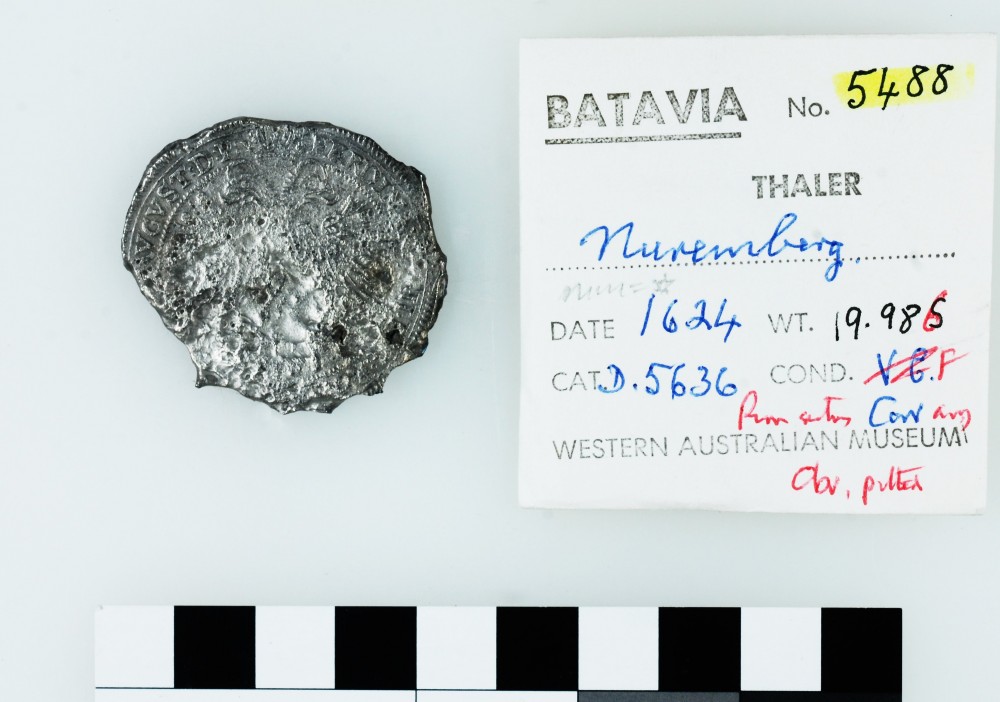 BATAVIA No. 5488
THALER
Nuremberg
DATE 1624 WT. 19.986
CAT. D.5636 COND. F
Corr
WESTERN AUSTRALIAN MUSEUM
Obv. pitted